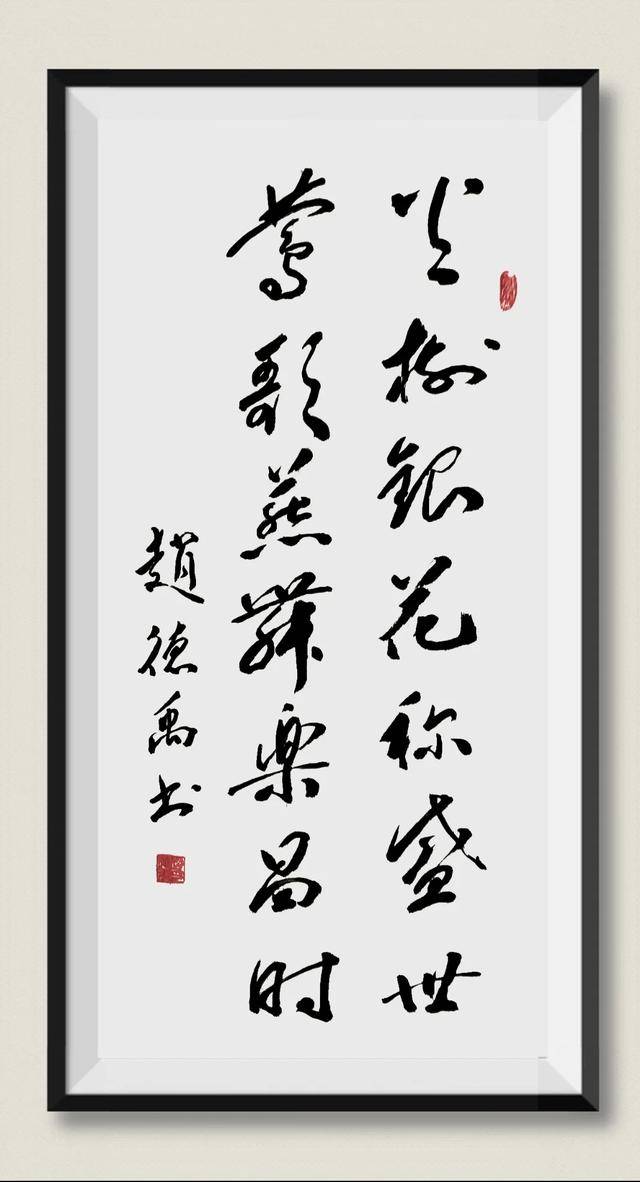 火树银花称盛世
莺歌燕舞樂昌时
趙德禹书